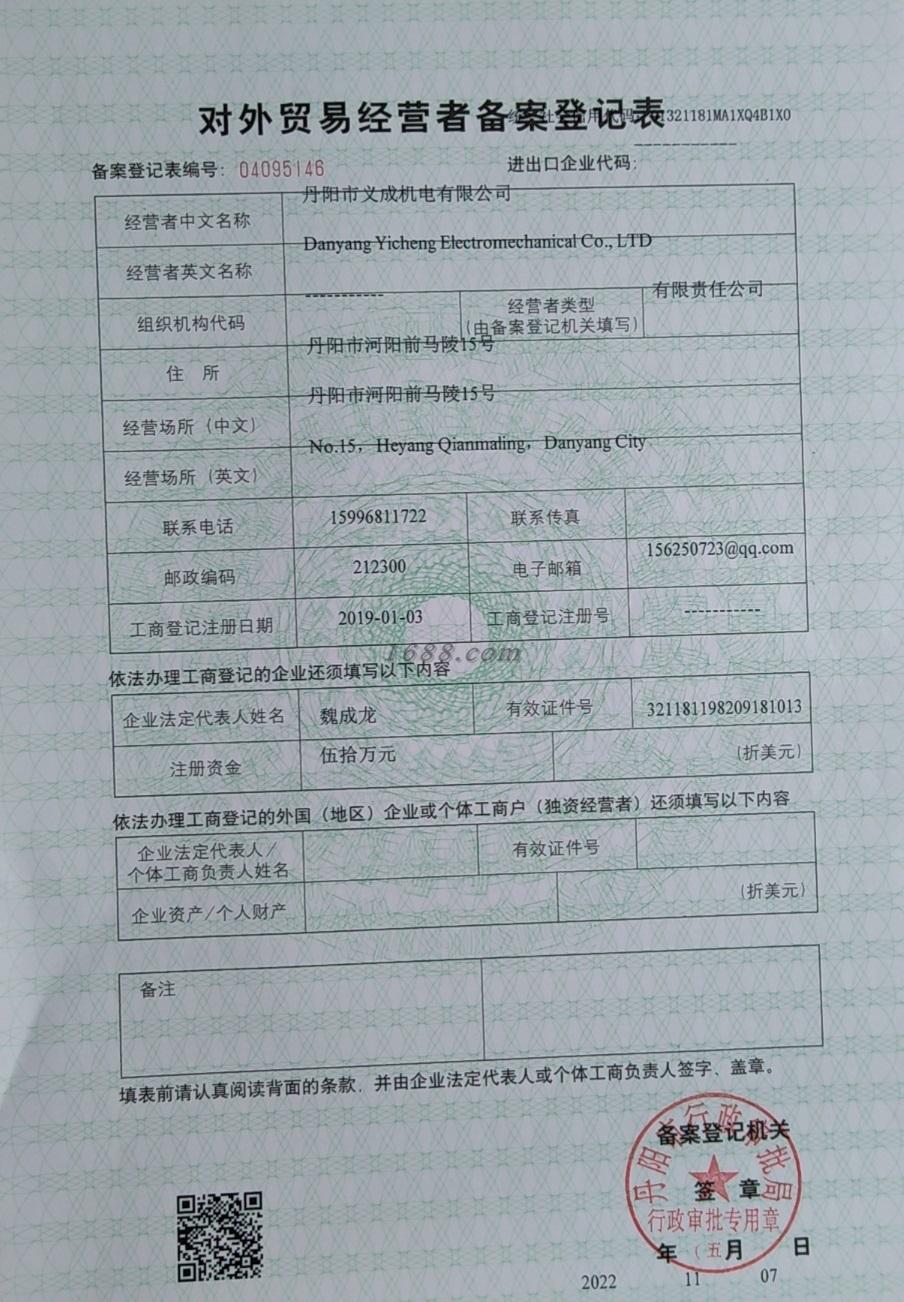 对外贸易经营者备案登记表
统一社会信用代码:91321181MA1XQ4B1X0
备案登记表编号: 04095146
进出口企业代码: -----------
经营者中文名称 丹阳市文成机电有限公司
经营者英文名称 Danyang Yicheng Electromechanical Co., LTD
组织机构代码 ----------- 经营者类型 有限责任公司
(由备案登记机关填写)
住 所 丹阳市河阳前马陵15号
经营场所(中文) 丹阳市河阳前马陵15号
经营场所(英文) No.15, Heyang Qianmaling, Danyang City
联系电话 15996811722 联系传真
邮政编码 212300 电子邮箱 156250723@qq.com
工商登记注册日期 2019-01-03 工商登记注册号 -----------
1688.com
依法办理工商登记的企业还须填写以下内容
企业法定代表人姓名 魏成龙 有效证件号 321181198209181013
注册资金 伍拾万元 (折美元)
依法办理工商登记的外国(地区)企业或个体工商户(独资经营者)还须填写以下内容
企业法定代表人/ 有效证件号
个体工商负责人姓名
企业资产/个人财产 (折美元)
备注
填表前请认真阅读背面的条款,并由企业法定代表人或个体工商负责人签字、盖章。
丹阳市行政审批局
备案登记机关
签 章
行政审批专用章
(五)
年 月 日
2022 11 07